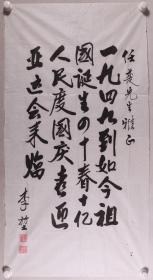 任菱先生雅正
一九四九到如今祖
國誕生四十春十亿
人民度國庆喜迎
亚运会来临
李堃